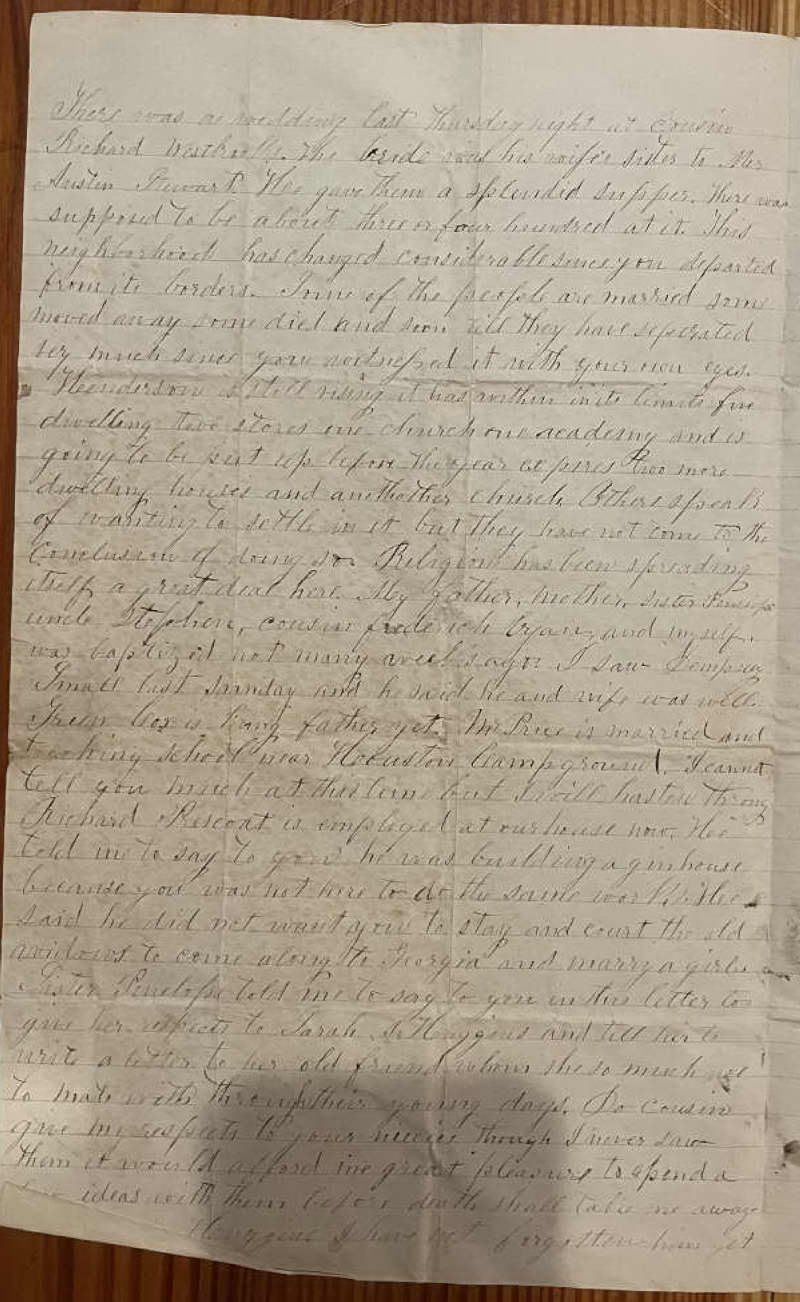 There was a wedding last Thursday night at Cousin
Richard The bride was his wife's sister to Mrs
Austin Stewart. Hee gave them a splendid supper. There was
supposed to be about three or four hundred at it. This
neighborhood has changed considerable since you departed
from its borders. Some of the people are married some
moved away some died and soon till they have seperated
very much since you witnessed it with your own eyes.
Henderson is still rising it has within its limits five
dwelling two stores one church one academy and is
going to be put up before the year expires two more
dwelling houses and another church. Others speak
of wanting to settle in it but they have not come to the
conclusion of doing so. Religion has been spreading
itself a great deal here. My father, mother, sister Penelope
uncle Stephen, cousin frederick and myself.
was baptized not many weeks ago. I saw Dempsey
Small last Sunday and he said he and wife was well.
Green father yet. Mr Price is married and
teaching school near Houston Campground. I cannot
tell you much at this time but I will hasten through
Richard is employed at our house now. Hee
told me to say to you he was building a ginhouse
because you was not here to do the same work. Hee
said he did not want you to stay and court the old
widows to come along to Georgia and marry a girl.
Sister Penelope told me to say to you in this letter to
give her respects to Sarah Huggins and tell her to
write a letter to her old friend whom she so much use
to mate with through their young days. Do cousin
give my respects to your nieces though I never saw
them it would afford me great pleasure to spend a
ideas with them before death shall take me away
Huggins I have not forgotten him yet